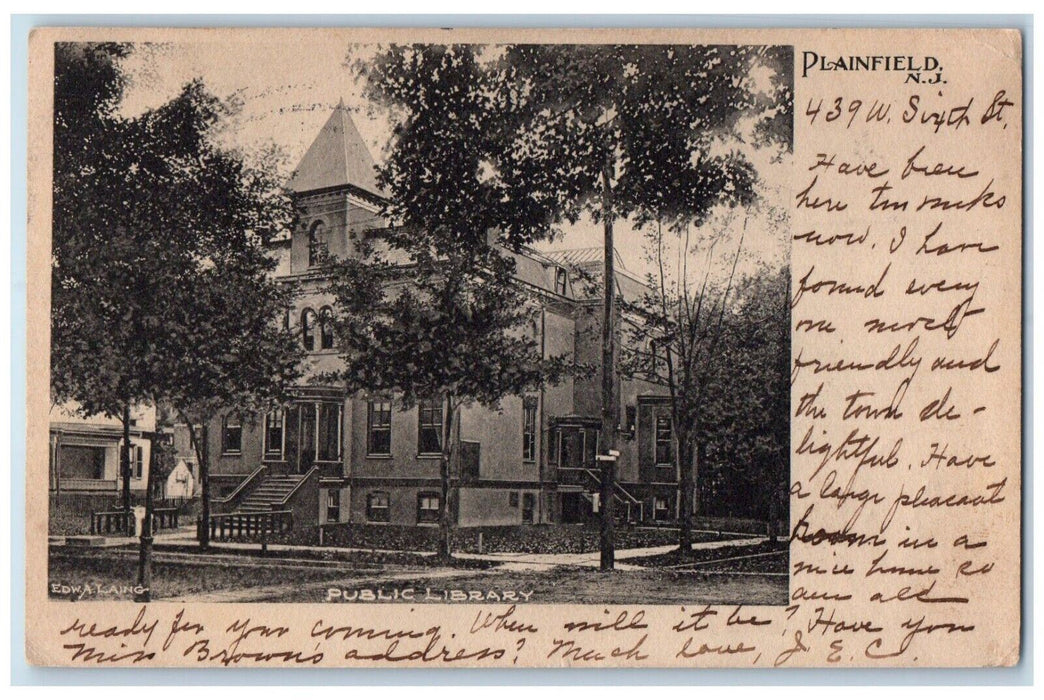 PLAINFIELD,
N.J.
439 W. Sixth St.
Have been
here two weeks
now. I have
found every
one most
friendly and
the town de-
lightful. Have
a large pleasant
room in a
nice home so
am all
ready for your coming. When will it be? Have you
Miss Brown's address? Much love, J. E. C.
EDW. A. LAING
PUBLIC LIBRARY